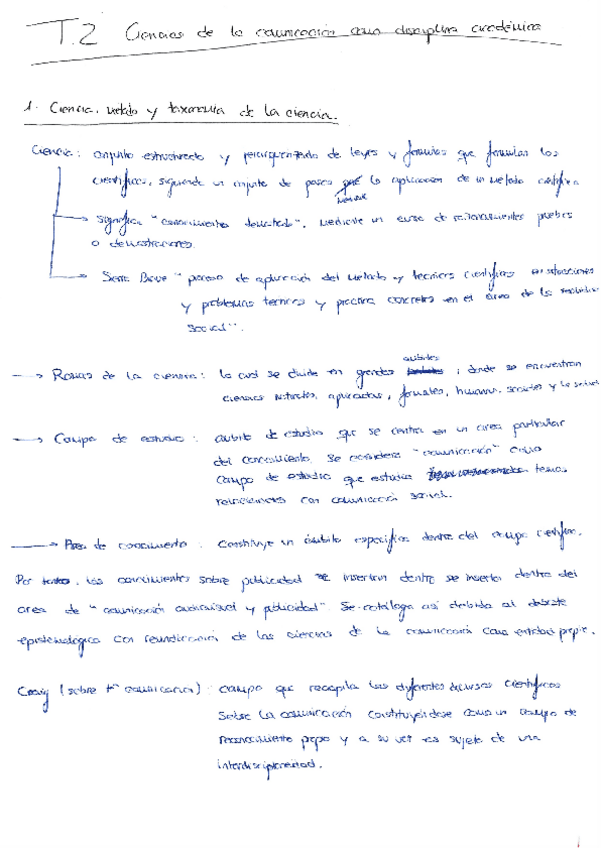 T.2 Ciencias de la comunicación como disciplina académica
1. Ciencia, método y taxonomía de la ciencia.
Ciencia: conjunto estructurado y de leyes y formulas que formulan los
científicos, siguiendo un conjunto de pasos la aplicación de un método científico
mediante
→ significa "conocimiento demostrado". Mediante un curso de razonamientos pruebas
o demostraciones.
→ "proceso de aplicación del método y técnicas científicas en situaciones
y problemas teóricos y práctica concretos en el área de la realidad
social".
→ Ramas de la ciencia: la cual se divide en grandes ambitos, donde se encuentran
ciencias naturales, aplicadas, formales, human, sociales y
→ Campo de estudio: ambito de estudio que se centra en un area particular
del conocimiento. Se considera "comunicación" como
campo de estudio que estudia temas
relacionados con comunicación social.
→ Área de conocimiento: Constituye un ámbito específico dentro del campo científico.
Por tanto, los conocimientos sobre publicidad se insertan dentro se inserta dentro del
area de "comunicación audiovisual y publicidad". Se cataloga así debido al debate
epistemológico con reivindicación de las ciencias de la comunicación como entidad propia.
Craig (sobre tª comunicación): campo que recopila los diferentes discursos científicos
sobre la comunicación constituyéndose como un campo de
reconocimiento propio y a su vez es sujeto de una
interdisciplinariedad.